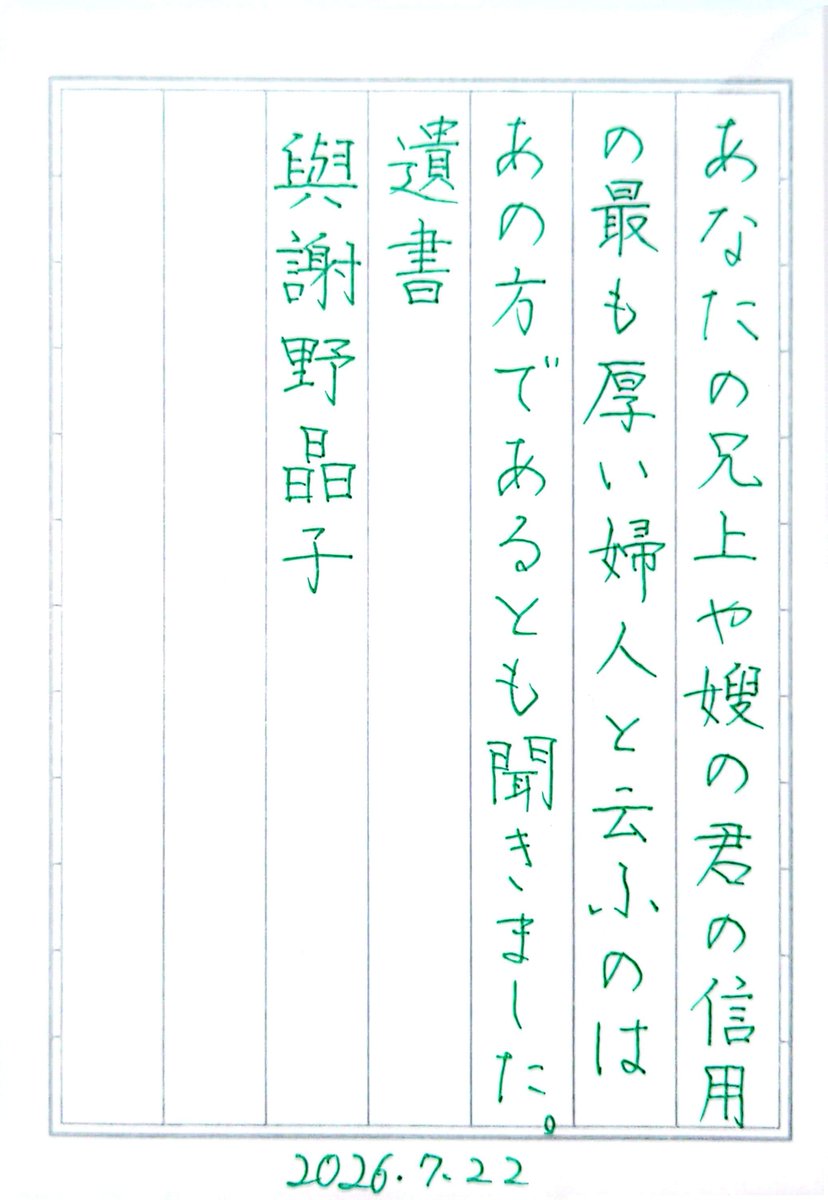 あなたの兄上や嫂の君の信用
の最も厚い婦人と云ふのは
あの方であるとも聞きました。
遺書
與謝野晶子
2026.7.22